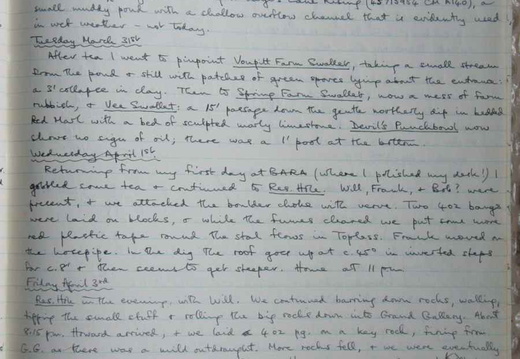 small muddy pond with a shallow overflow channel that is evidently used
in wet weather - not today.
Tuesday March 31st
After tea I went to pinpoint Voupitt Farm Swallet, taking a small stream
from the pond & still with patches of green spores lying about the entrance:
a 3' collapse in clay. Then to Spring Farm Swallet, now a mess of farm
rubbish, & Vee Swallet; a 15' passage down the gentle northerly dip in bedded
Red Marl with a bed of sculpted marly limestone. Devil's Punchbowl now
shows no sign of oil; there was a 1' pool at the bottom.
Wednesday April 1st.
Returning from my first day at BARA (where I polished my desk!) I
gobbled some tea & continued to Res. Hole. Will, Frank, & Bob? were
present, & we attacked the boulder choke with verve. Two 4oz bangs
were laid on blocks, & while the fumes cleared we put some more
red plastic tape round the stal flows in Topless. Frank moved on
the hosepipe. In the dig the roof goes up at c.45° in inverted steps
for c.8' & then seems to get steeper. Home at 11 pm
Friday April 3rd
Res. Hole in the evening, with Will. We continued barring down rocks, walling,
tipping the small stuff & rolling the big rocks down into Grand Gallery. About
8:15 pm. Howard arrived, & we laid a 4oz pg. on a key rock, firing from
G.G. as there was a mild outdraught. More rocks fell, & we were eventually